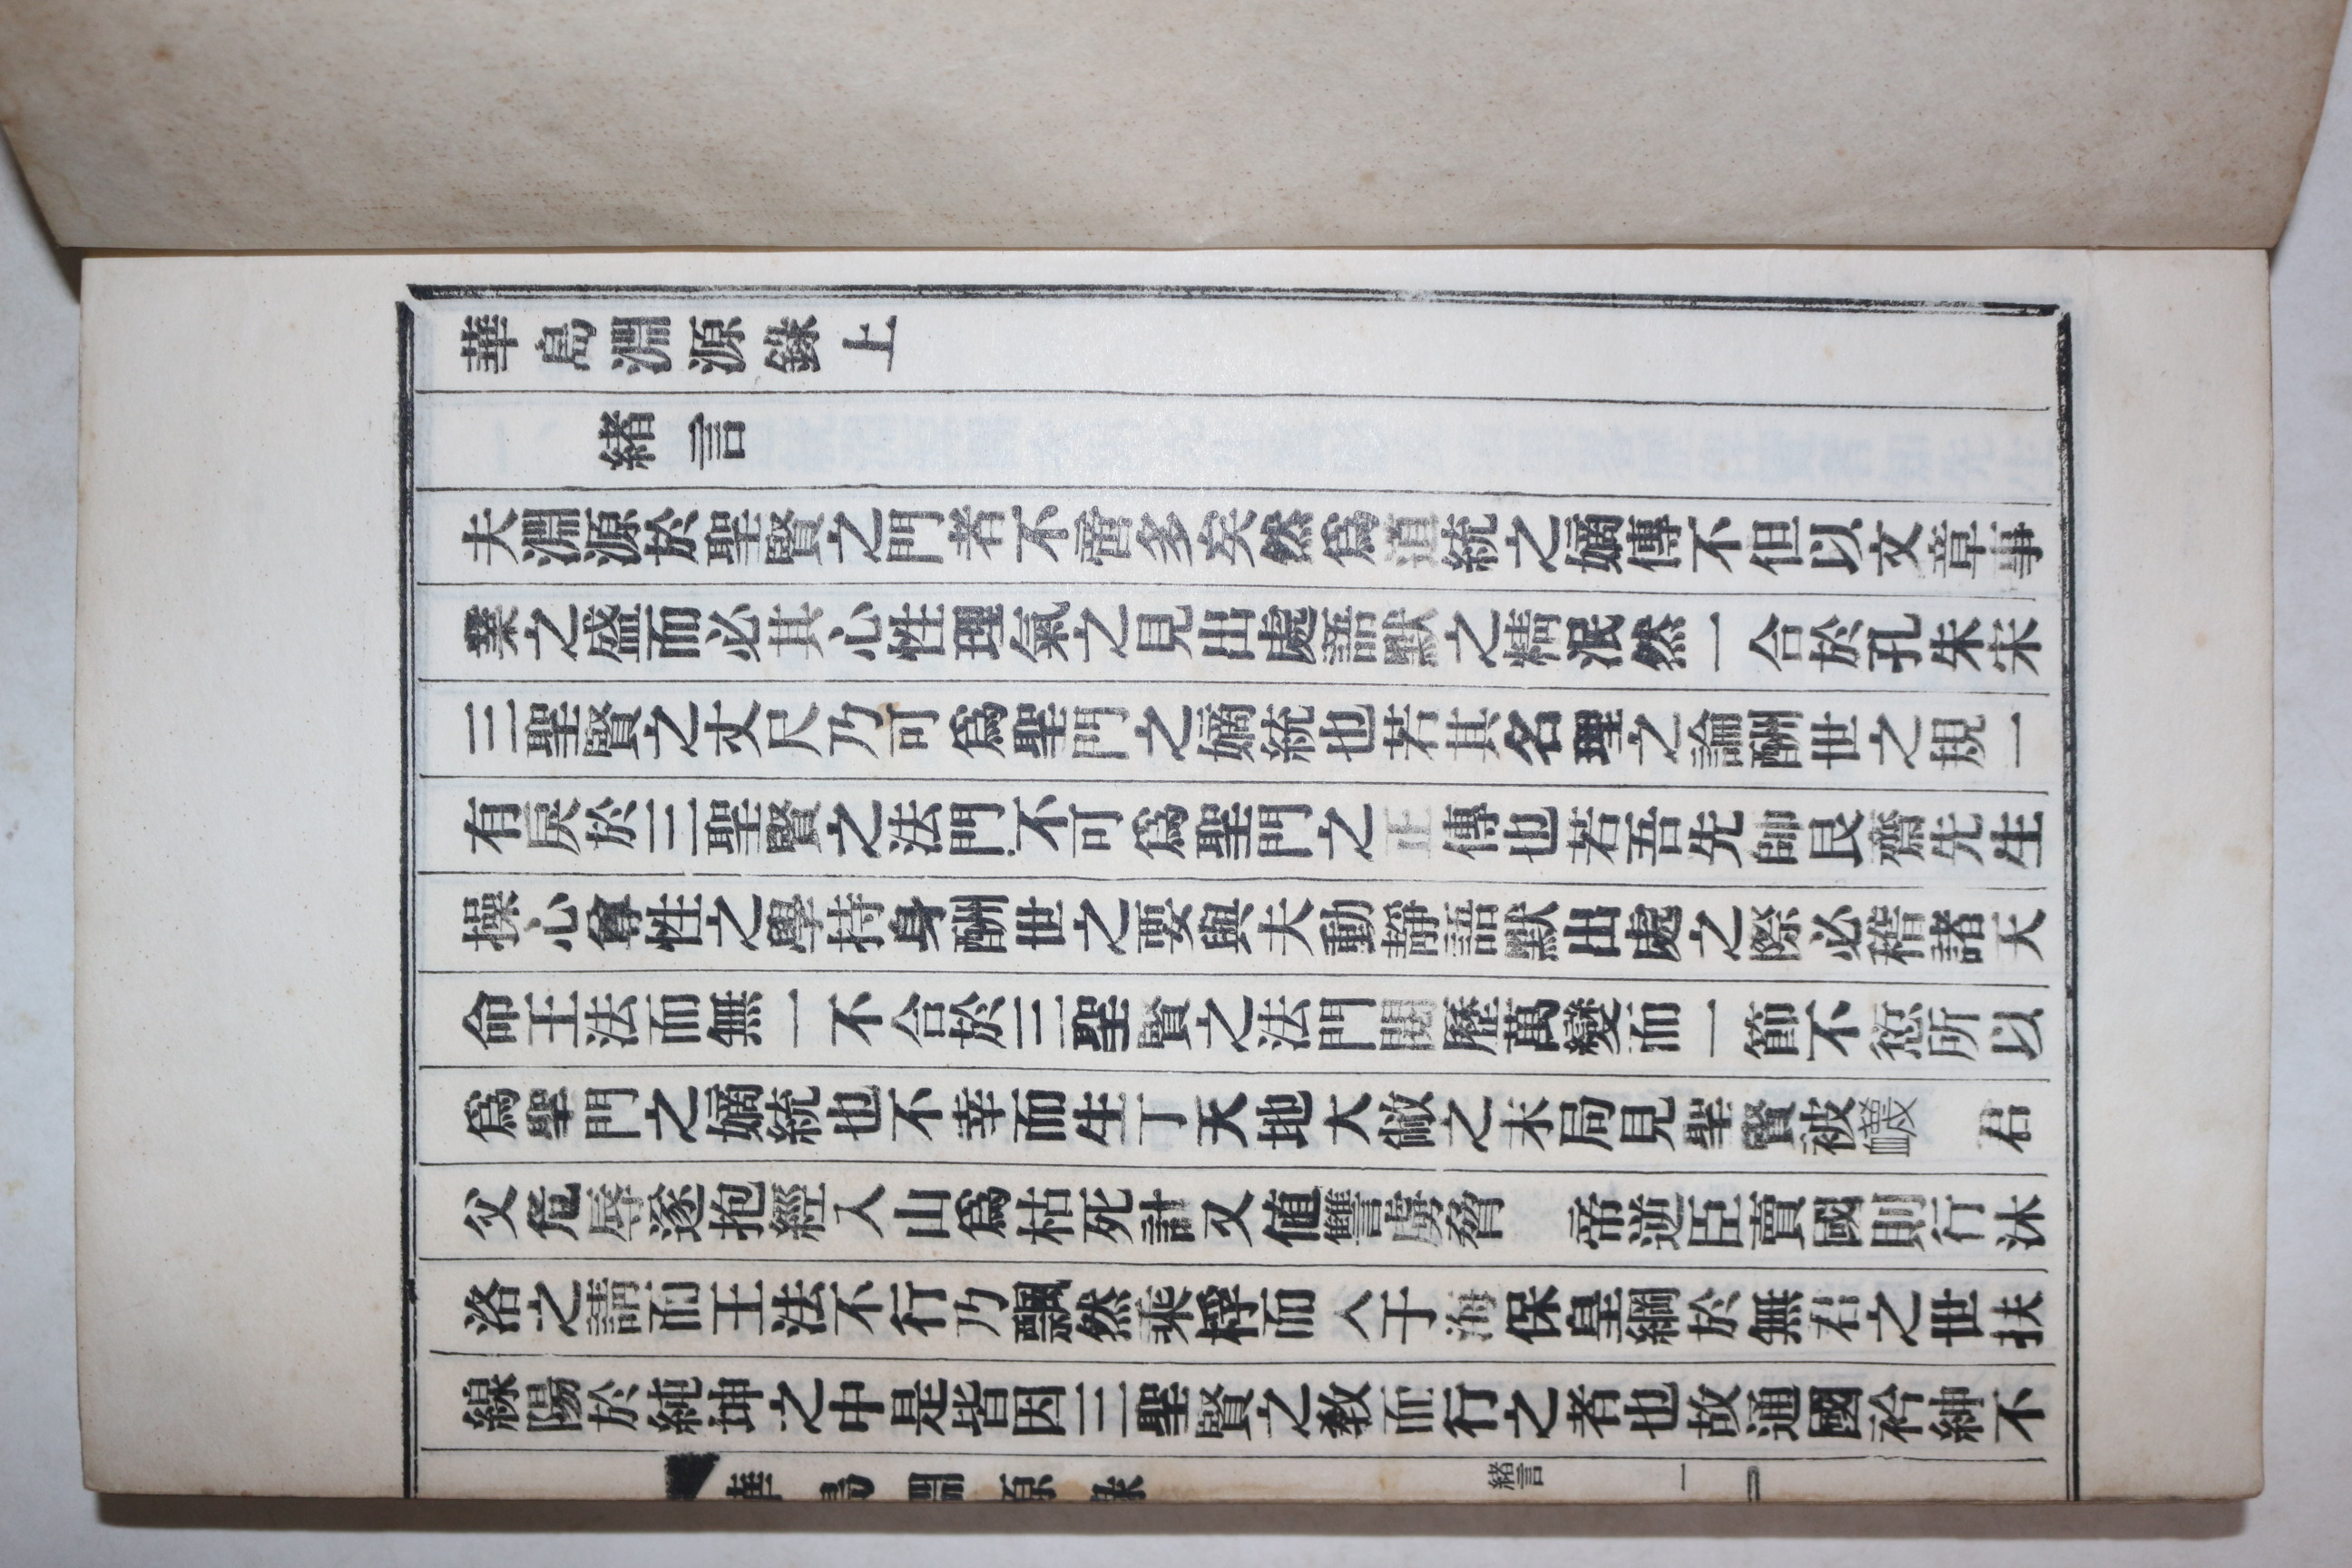 華島淵源錄上
緖言
夫淵源於聖賢之門者不啻多矣然爲道統之嫡傳不但以文章事
業之盛而必其心性理氣之見出處語默之精泯然一合於孔朱宋
三聖賢之丈尺乃可爲聖門之嫡統也若其名理之論酬世之規一
有戾於三聖賢之法門不可爲聖門之正傳也若吾先師艮齋先生
操心尊性之學持身酬世之要與夫動靜語默出處之際必稽諸天
命王法而無一不合於三聖賢之法門閱歷萬變而一節不愆所以
爲聖門之嫡統也不幸而生丁天地大敝之末局見聖賢被衊 君
父危辱遂抱經入山爲枯死計又値讐虜脅 帝逆臣賣國則行沐
洛之請而王法不行乃飄然乘桴而入于海保皇綱於無君之世扶
線陽於純坤之中是皆因三聖賢之敎而行之者也故通國衿紳不
華島淵源錄 緖言 一